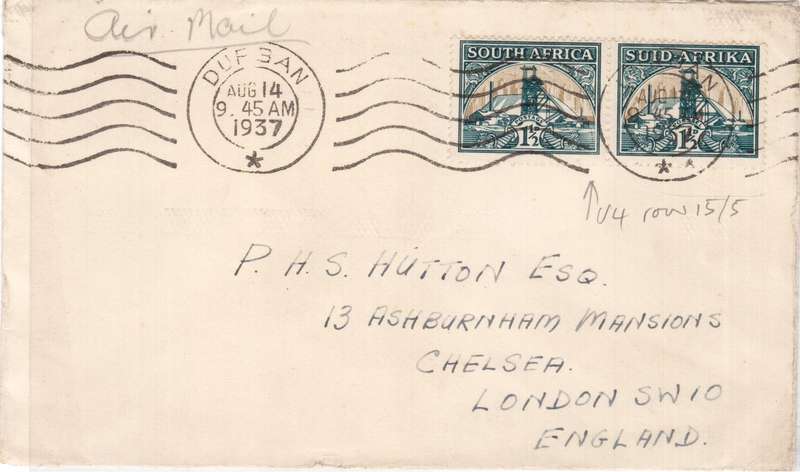 Air Mail
DURBAN
AUG 14
9. 45 AM
1937
SOUTH AFRICA
POSTAGE
1½
SUID-AFRIKA
1½
V4 row 15/5
P. H. S. HUTTON ESQ.
13 ASHBURNHAM MANSIONS
CHELSEA.
LONDON SW10
ENGLAND.